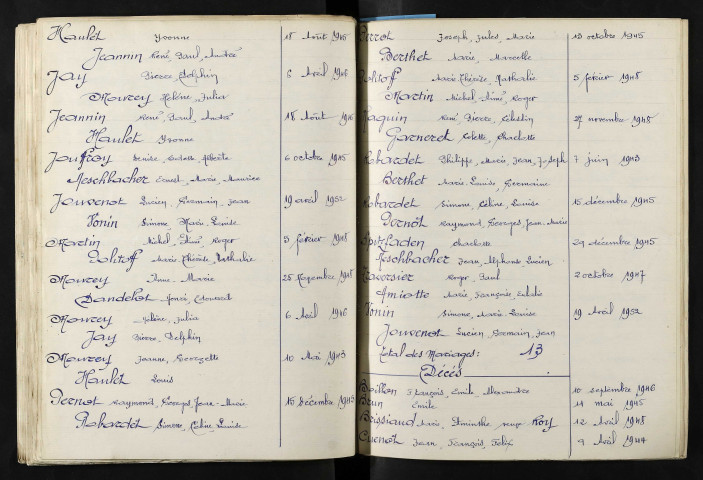 Haulet Yvonne 18 Août 1946
Jeannin René, Paul, André
Jay Pierre Delphin 6 Avril 1946
Mourey Hélène, Julia
Jeannin René, Paul, André 18 Août 1946
Haulet Yvonne
Jouffroy Denise, Albertine 6 octobre 1945
Aeschbacher Ernest, Marie, Maurice
Jouvenot Lucien, Germain, Jean 19 avril 1952
Vonin Simone, Marie, Louise
Martin Michel, Aimé, Roger 5 février 1948
Politoff Marie, Thérèse, Nathalie
Mourey Anne-Marie 25 Novembre 1948
Dandelot Henri, Edouard
Mourey Hélène, Julia 6 Avril 1946
Jay Pierre, Delphin
Mourey Jeanne, Georgette 10 Mai 1943
Haulet Louis
Pernot Raymond, Georges, Jean-Marie 15 Décembre 1945
Robardet Simone, Céline, Louise
Perrot Joseph, Jules, Marie 13 octobre 1945
Berthet Marie, Marcelle
Politoff Marie-Thérèse, Nathalie 5 février 1948
Martin Michel, Aimé, Roger
Raguin René, Pierre, Célestin 27 novembre 1948
Garneret Colette, Charlotte
Robardet Philippe, Marie, Jean, Joseph 7 juin 1943
Berthet Marie, Louise, Germaine
Robardet Simone, Céline, Louise 15 décembre 1945
Pernot Raymond, Georges, Jean-Marie
Charlotte 29 décembre 1945
Aeschbacher Jean, Alphonse, Lucien
Roger, Paul 2 octobre 1947
Amiotte Marie, Françoise, Eulalie
Vonin Simone, Marie, Louise 19 Avril 1952
Jouvenot Lucien, Germain, Jean
Total des Mariages : 13
Décès
Boillon François, Emile, Alexandre 10 septembre 1946
Brun Emile 11 mai 1945
Brissiaud Marie, Aminthe veuve Roy 12 Avril 1948
Cuenot Jean, François, Félix 9 Avril 1944